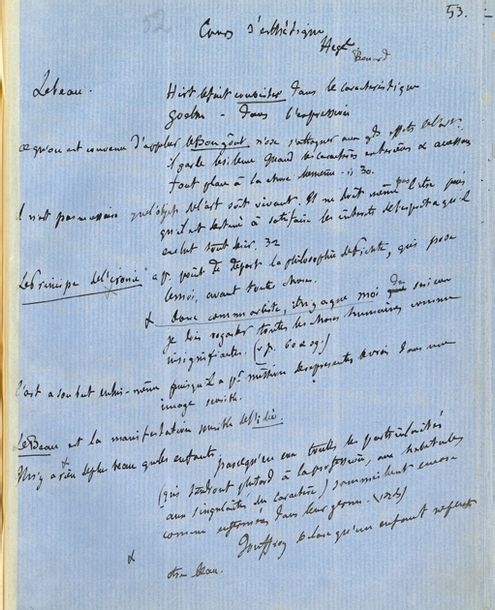 52
53.
Cours d'esthétique
Hegel
Bénard
Le beau.
Hirt le fait consister dans le caractéristique
Goethe - dans l'expression
ce qu'on est convenu d'appeler le Bon goût n'ose s'attaquer aux gds effets de l'art.
il garde le silence quand les caractères extérieurs & accessoires
font place à la chose elle-même - 30.
il n'est pas nécessaire que l'objet de l'art soit vivant. Il ne doit même pas l'être puis
qu'il est destiné à satisfaire les intérêts de l'esprit & qu'il
exclut tout désir. 32
Le Principe de l'ironie a pr point de départ la philosophie de Fichte, qui pose
le moi, avant toute chose.
donc comme artiste, il n'y a que moi de
je dois regarder toutes les choses humaines comme
insignifiantes. (p. 60 & 69.)
l'art a son but en lui-même puisqu'il a pr mission de représenter le vrai dans une
image sensible.
Le Beau est la manifestation sensible de l'idée.
Il n'y a rien de plus beau que les enfants.
parce qu'en eux toutes les particularités
(qui tiendront plus tard à la profession, aux habitudes
aux singularités du caractère) sommeillent encore
comme enfermées dans leur germe.
Jouffroy blâme qu'un enfant
être beau.